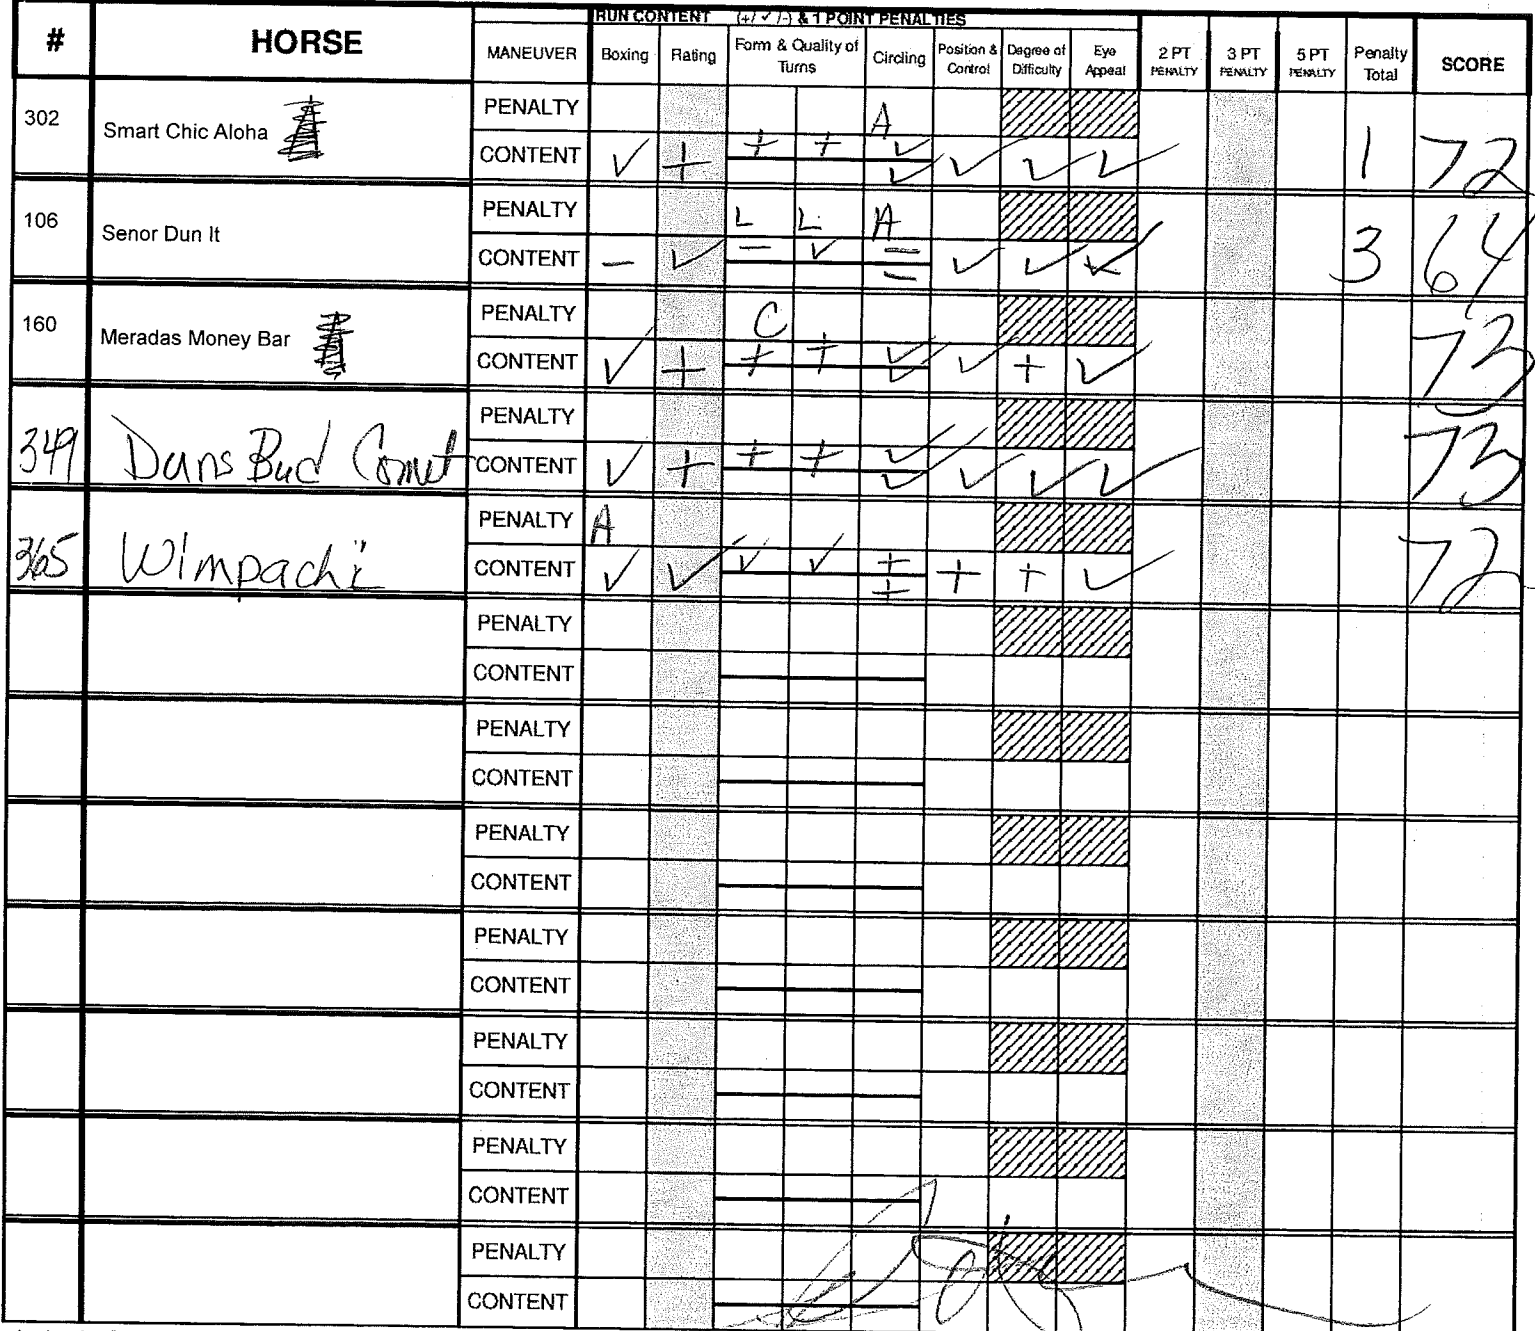 RUN CONTENT (+/ ✓ /-) & 1 POINT PENALTIES
# HORSE MANEUVER Boxing Rating Form & Quality of Turns Circling Position & Control Degree of Difficulty Eye Appeal 2 PT PENALTY 3 PT PENALTY 5 PT PENALTY Penalty Total SCORE
302 Smart Chic Aloha PENALTY A
CONTENT ✓ + + + ✓ ✓ ✓ ✓ ✓ 1 72
106 Senor Dun It PENALTY L L A
CONTENT - ✓ - ✓ - - ✓ ✓ 3 64
160 Meradas Money Bar PENALTY C
CONTENT ✓ + + + ✓ ✓ ✓ + ✓ 73
349 Duns Bud Comet PENALTY
CONTENT ✓ + + + ✓ ✓ ✓ ✓ ✓ 73
365 Wimpachi PENALTY A
CONTENT ✓ ✓ ✓ ✓ + + + + ✓ 72
PENALTY
CONTENT
PENALTY
CONTENT
PENALTY
CONTENT
PENALTY
CONTENT
PENALTY
CONTENT
PENALTY
CONTENT
PENALTY
CONTENT